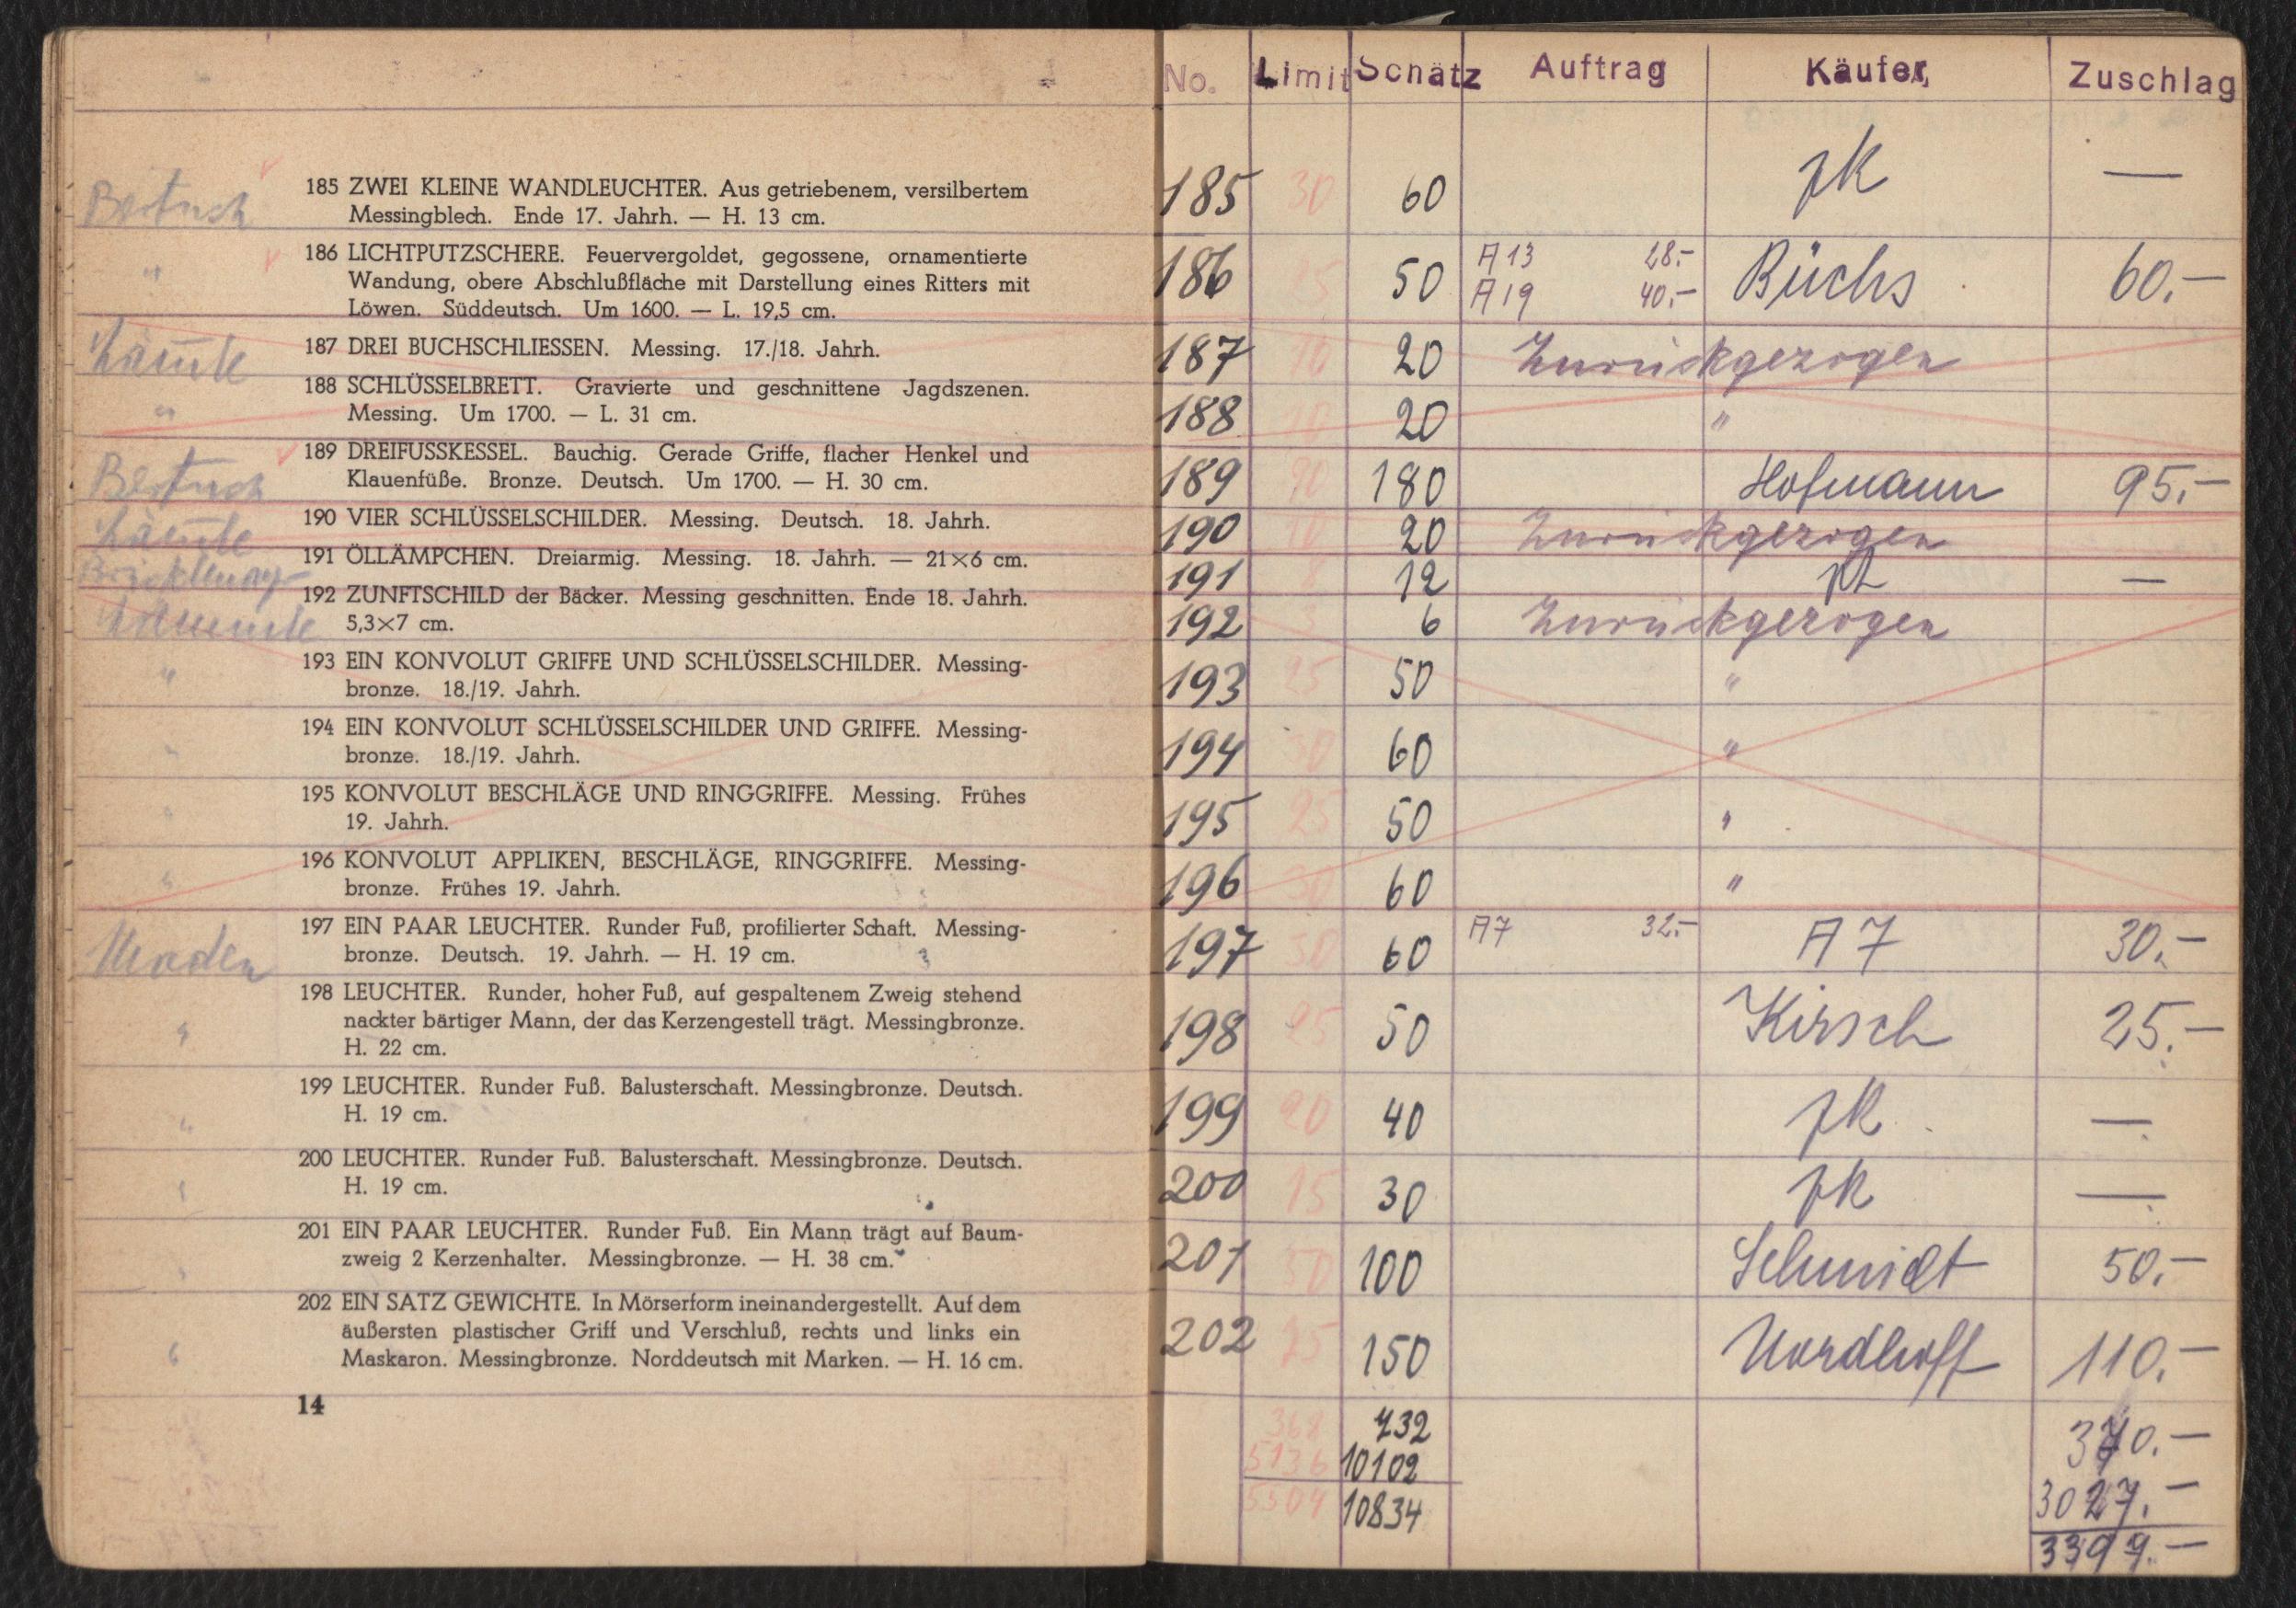 185 ZWEI KLEINE WANDLEUCHTER. Aus getriebenem, versilbertem
Messingblech. Ende 17. Jahrh. — H. 13 cm.
186 LICHTPUTZSCHERE. Feuervergoldet, gegossene, ornamentierte
Wandung, obere Abschlußfläche mit Darstellung eines Ritters mit
Löwen. Süddeutsch. Um 1600. — L. 19,5 cm.
187 DREI BUCHSCHLIESSEN. Messing. 17./18. Jahrh.
188 SCHLÜSSELBRETT. Gravierte und geschnittene Jagdszenen.
Messing. Um 1700. — L. 31 cm.
189 DREIFUSSKESSEL. Bauchig. Gerade Griffe, flacher Henkel und
Klauenfüße. Bronze. Deutsch. Um 1700. — H. 30 cm.
190 VIER SCHLÜSSELSCHILDER. Messing. Deutsch. 18. Jahrh.
191 ÖLLÄMPCHEN. Dreiarmig. Messing. 18. Jahrh. — 21×6 cm.
192 ZUNFTSCHILD der Bäcker. Messing geschnitten. Ende 18. Jahrh.
5,3×7 cm.
193 EIN KONVOLUT GRIFFE UND SCHLÜSSELSCHILDER. Messing-
bronze. 18./19. Jahrh.
194 EIN KONVOLUT SCHLÜSSELSCHILDER UND GRIFFE. Messing-
bronze. 18./19. Jahrh.
195 KONVOLUT BESCHLÄGE UND RINGGRIFFE. Messing. Frühes
19. Jahrh.
196 KONVOLUT APPLIKEN, BESCHLÄGE, RINGGRIFFE. Messing-
bronze. Frühes 19. Jahrh.
197 EIN PAAR LEUCHTER. Runder Fuß, profilierter Schaft. Messing-
bronze. Deutsch. 19. Jahrh. — H. 19 cm.
198 LEUCHTER. Runder, hoher Fuß, auf gespaltenem Zweig stehend
nackter bärtiger Mann, der das Kerzengestell trägt. Messingbronze.
H. 22 cm.
199 LEUCHTER. Runder Fuß. Balusterschaft. Messingbronze. Deutsch.
H. 19 cm.
200 LEUCHTER. Runder Fuß. Balusterschaft. Messingbronze. Deutsch.
H. 19 cm.
201 EIN PAAR LEUCHTER. Runder Fuß. Ein Mann trägt auf Baum-
zweig 2 Kerzenhalter. Messingbronze. — H. 38 cm.
202 EIN SATZ GEWICHTE. In Mörserform ineinandergestellt. Auf dem
äußersten plastischer Griff und Verschluß, rechts und links ein
Maskaron. Messingbronze. Norddeutsch mit Marken. — H. 16 cm.
14
No. Limit Schätz Auftrag Käufer Zuschlag
185 30 60 —
186 50 A 13 28.- Büchs 60.—
A 19 40.-
187 10 20 Zurückgezogen
188 10 20 "
189 90 180 Hofmann 95.—
190 10 20 Zurückgezogen
191 12 —
192 3 6 Zurückgezogen
193 25 50 "
194 30 60 "
195 25 50 "
196 30 60 "
197 30 60 A 7 32.- A 7 30.—
198 25 50 Kirsch 25.—
199 20 40 —
200 15 30 —
201 50 100 Schmidt 50.—
202 75 150 Nordhoff 110.—
368 732
5136 10102
5504 10834